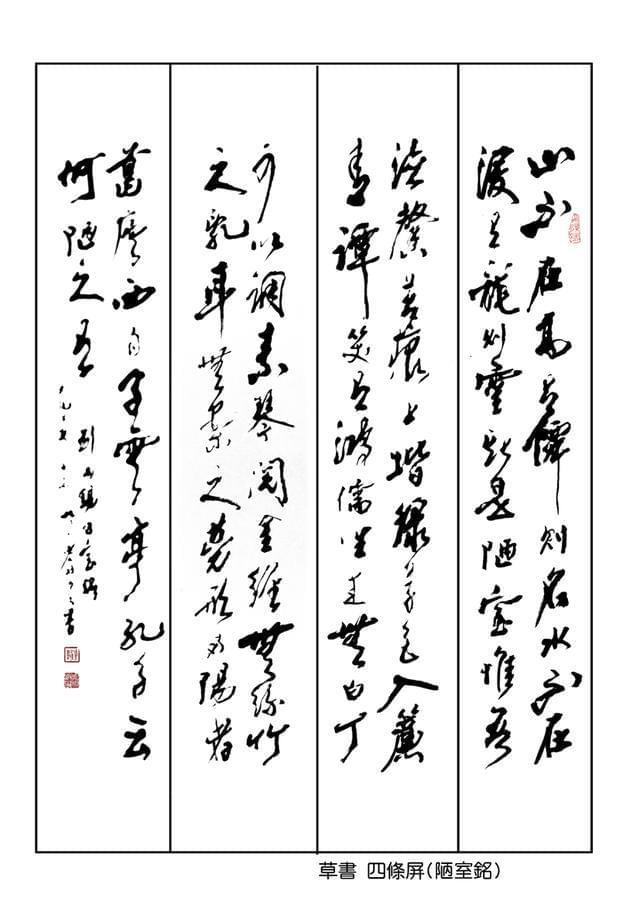 山不在高有僊則名水不在
深有龍則靈斯是陋室惟吾
德馨苔痕上階綠草色入簾
青譚笑有鴻儒往來無白丁
可以調素琴閱金經無絲竹
之亂耳無案之勞形南陽諸
葛廬西蜀子雲亭孔子云
何陋之有
劉禹錫陋室銘
書
草書 四條屏(陋室銘)